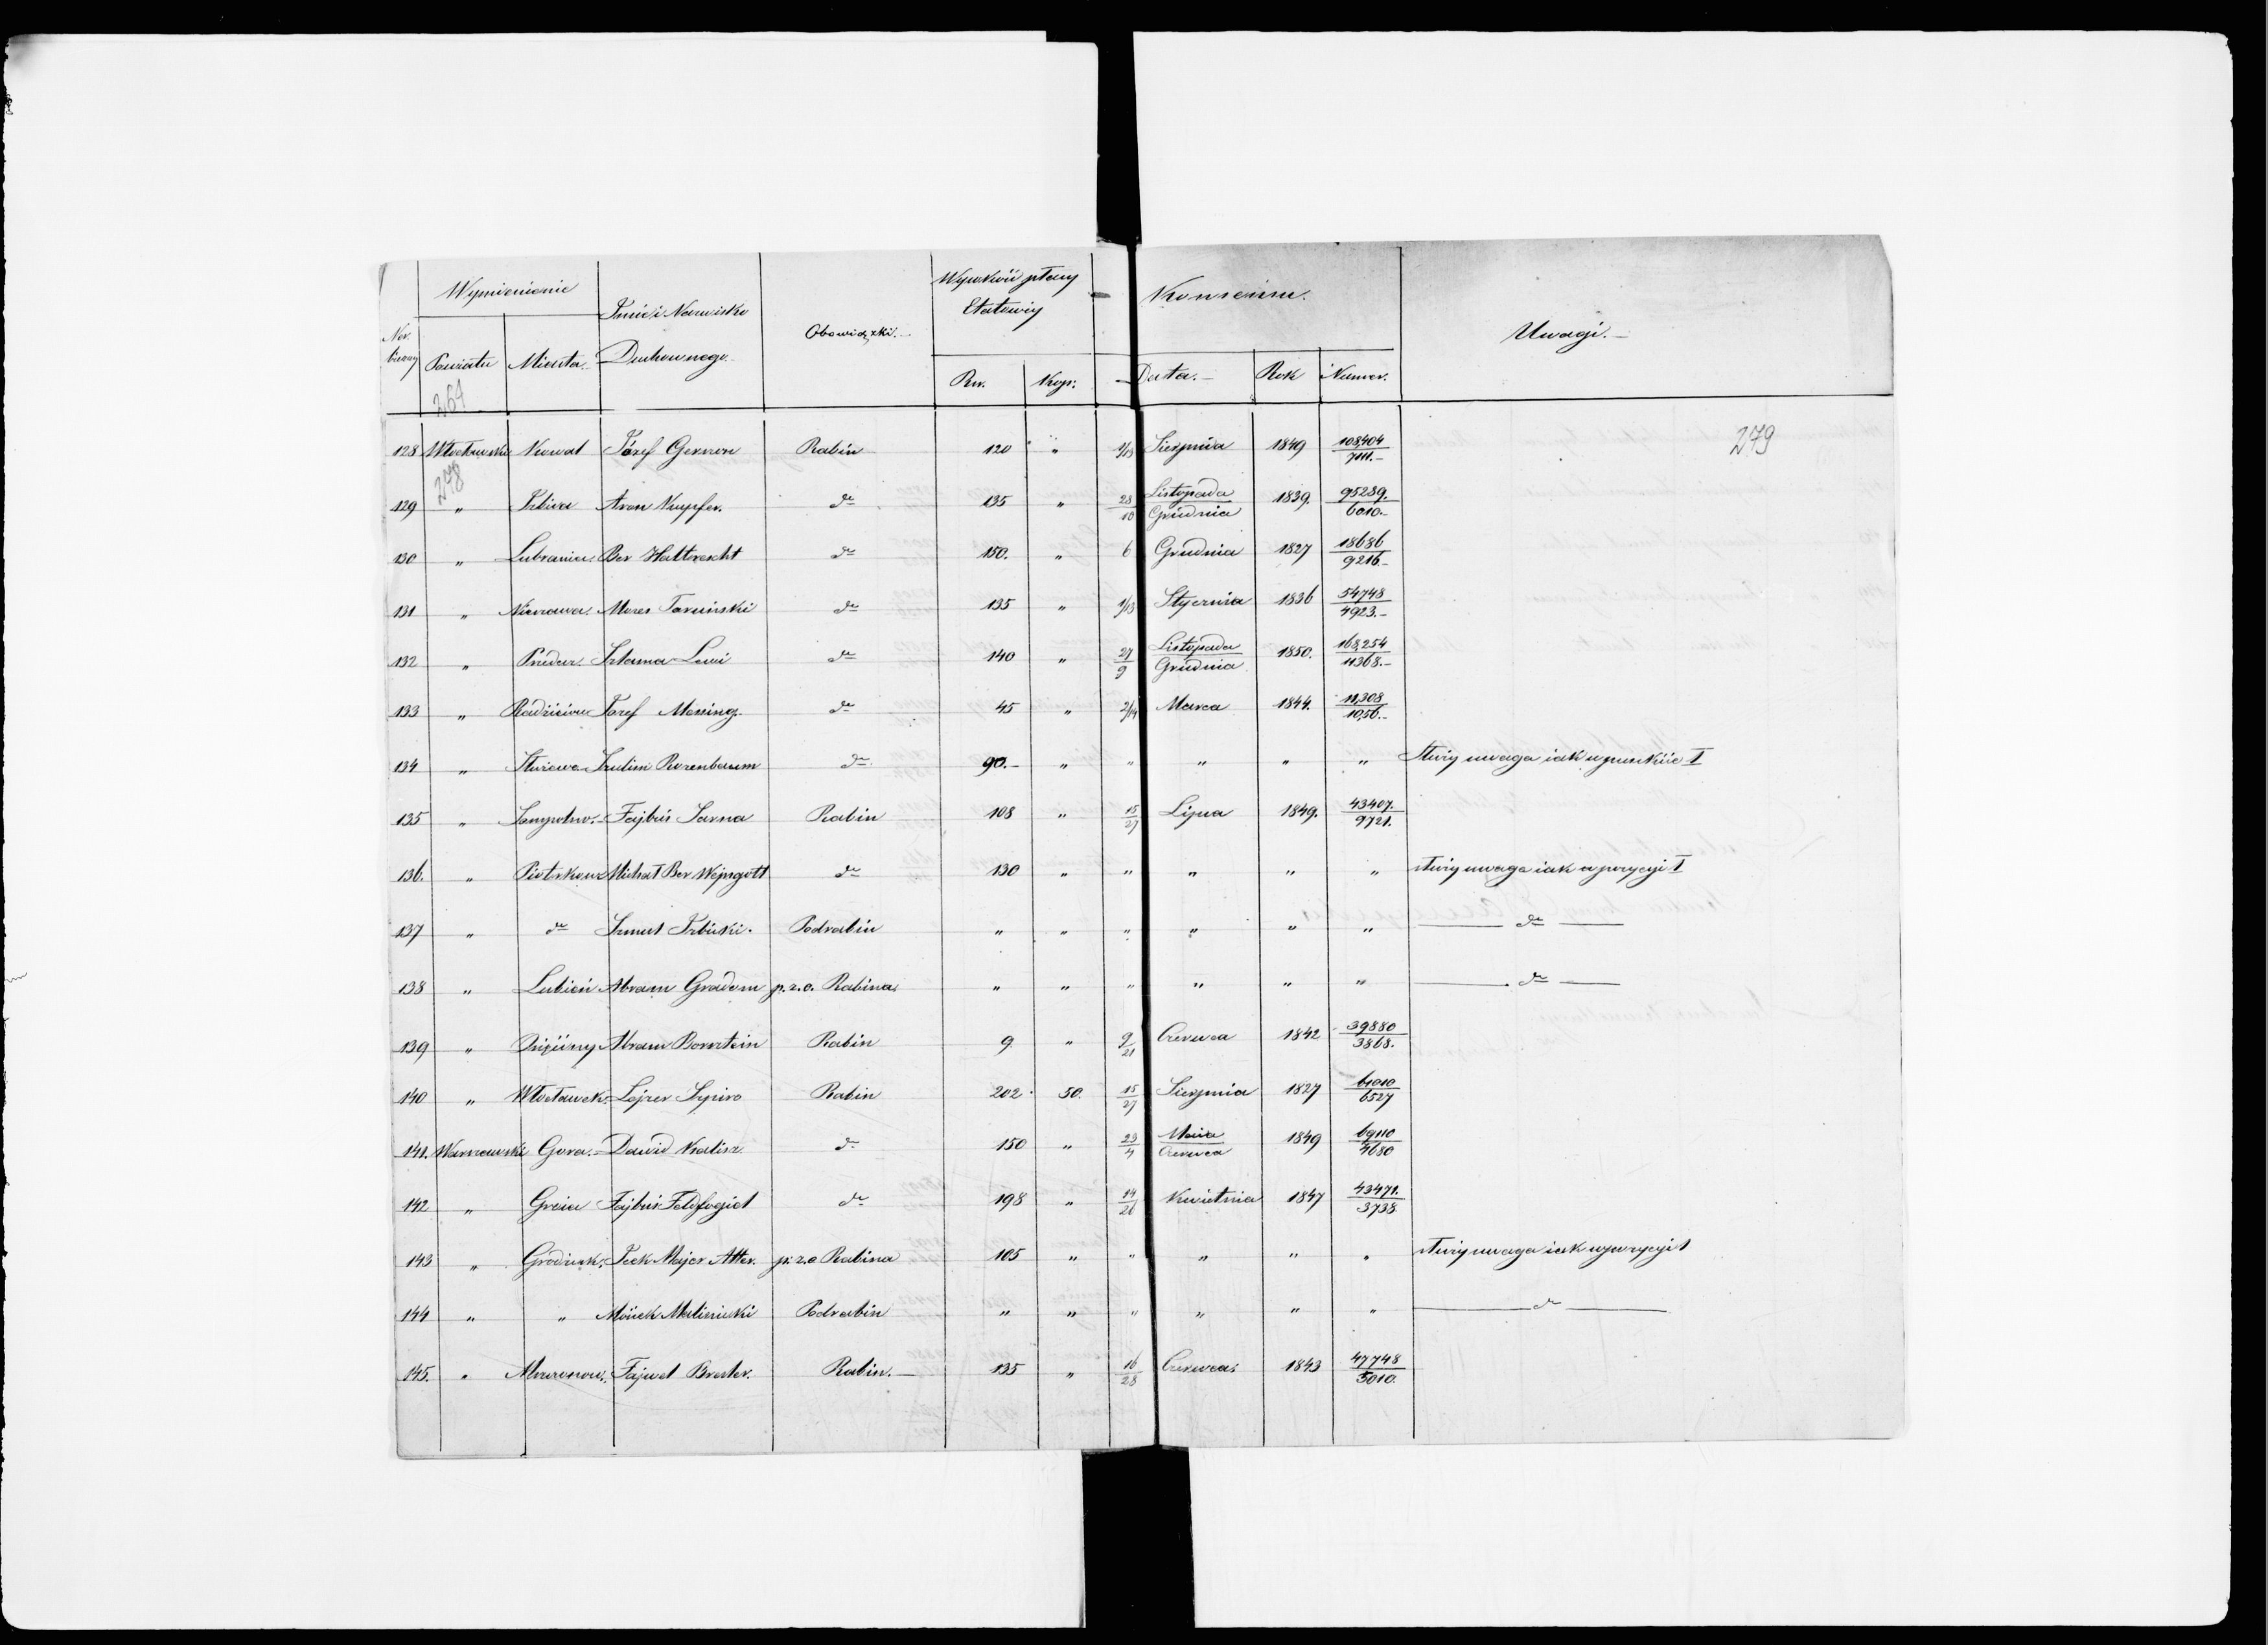 Wymienienie
Imie i Nazwisko
Duchownego.
Obowiązki.
Wysokość płacy
Etatowéy
Konsensu.
Uwagi.
Ner. bieżący
Powiatu
Miasta.
Rw.
Kop:
Data.
Rok
Numer.
264
128 Włocławski Kowal Józef Gerszon Rabin 120 " 1/13 Sierpnia 1849 108,404/7111.
278
279
129 " Izbica Aron Kupfer. do 135 " 28/10 Listopada/Grudnia 1839. 95289./6010.
130 " Lubraniec Ber Haltrecht do 150. " 6 Grudnia 1827 18686/9216.
131 " Nieszawa. Mozes Taruński do 135 " 1/13 Stycznia 1836 54748/4923.
132 " Przedecz Szlama Lewi do 140 " 27/9 Listopada/Grudnia 1850. 168,254/11368.
133 " Radzieiow Józef Messing do 45 " 2/14 Marca 1844. 11,308/1056.
134 " Służewo Szulim Rozenbaum do 90. " " " " " Służy uwaga iak w punkcie I
135 " Sompolno. Fajbuś Sarna Rabin 108 " 15/27 Lipca 1849. 43407./9721.
136. " Piotrkow Michał Ber Wejngott do 130 " " " " " służy uwaga iak w pozycyi I
137 " do Szmul Izbicki. Podrabin " " " " " " do
138 " Lubień Abram Gradom p.z.o. Rabina " " " " " " do
139 " Abram Bornstein Rabin 9 " 9/21 Czerwca 1842 39880/3868.
140 " Włocławek Lejzer Szpiro Rabin 202 50. 15/27 Sierpnia 1827 61010/6527
141. Warszawski Gora. Dawid Kalisz do 150 " 23/4 Maia/Czerwca 1849 69110/4680
142 " Fajbuś do 198 " 14/26 Kwietnia 1847 43471./3738
143 " Grodzisk. Icek Majer Alter. p.z.o Rabina 105 " " " " " służy uwaga iak w pozycyi I
144 " " Mosiek Podrabin " " " " " " do
145. " Mszczonow. Fajwel Brester. Rabin. 135 " 16/28 Czerwca 1843 47748/5010.